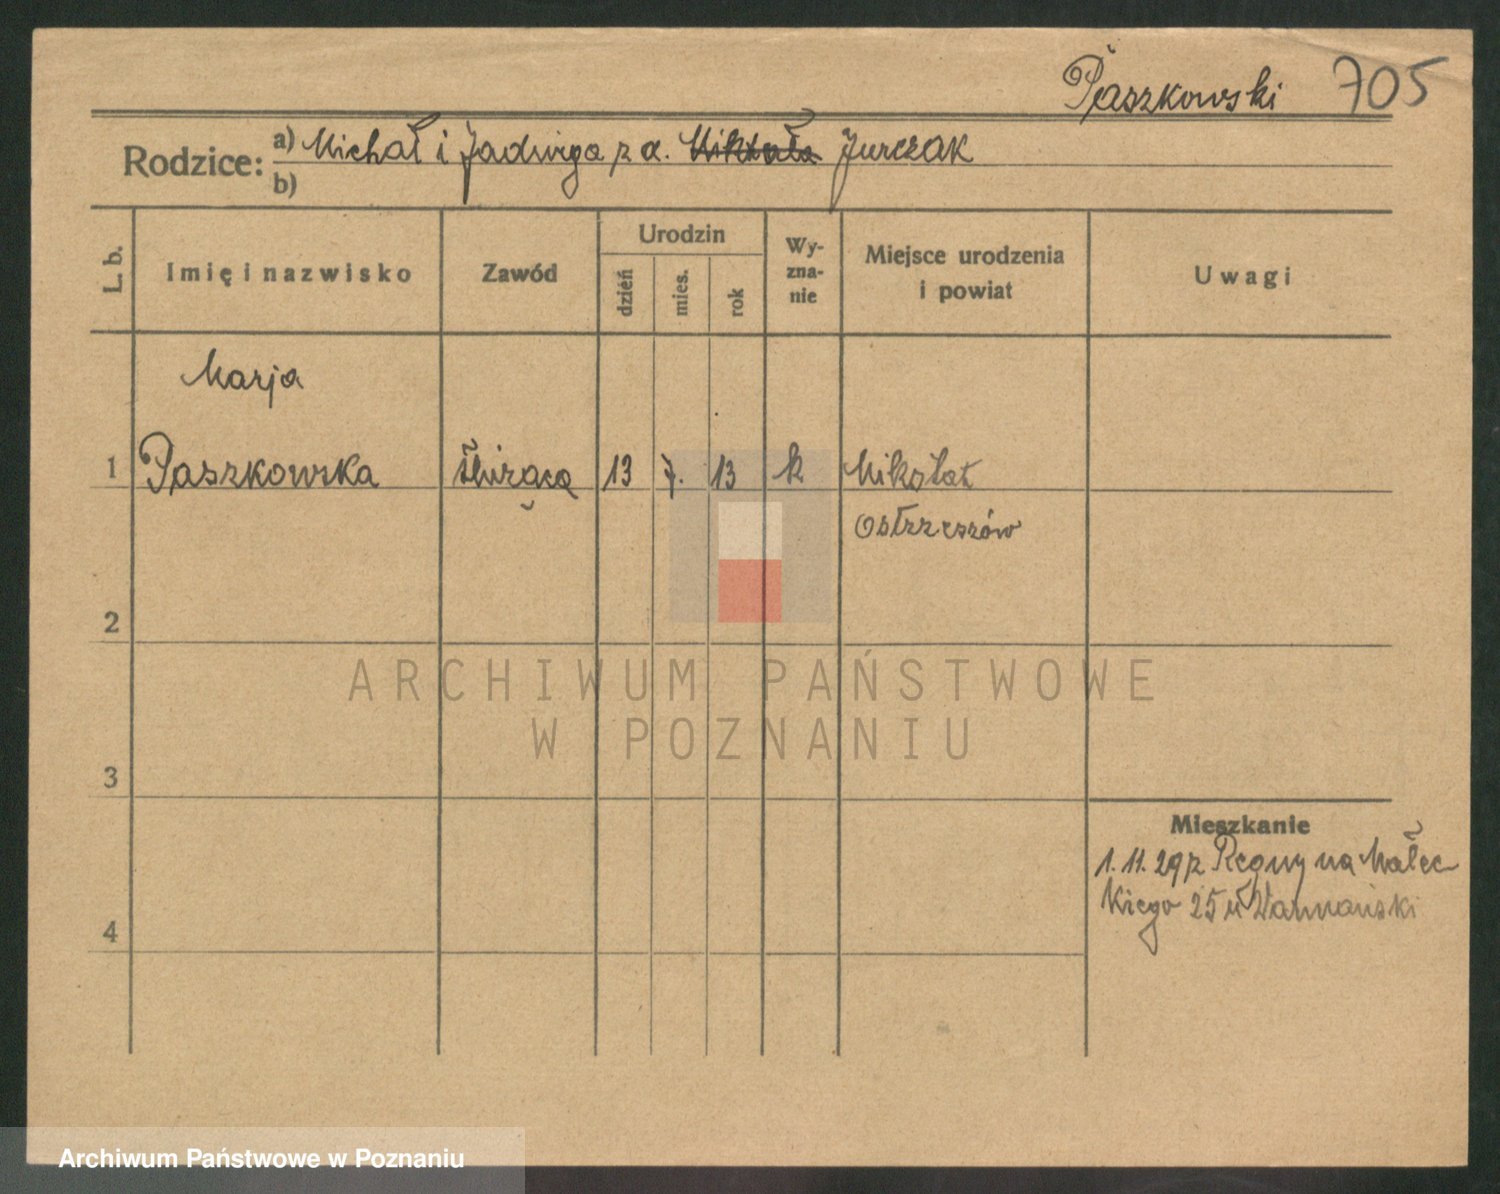 Paszkowski 705
Rodzice: a) Michał i Jadwiga z d. Jurczak
b)
L. b.
Imię i nazwisko
Zawód
Urodzin
dzień
mies.
rok
Wy-
zna-
nie
Miejsce urodzenia
i powiat
Uwagi
Marja
1 Paszkowska służąca 13 7. 13 k Mikstat
Ostrzeszów
2
ARCHIWUM PAŃSTWOWE
W POZNANIU
3
Mieszkanie
1.11.29 z na Małec
kiego 25 u
4
Archiwum Państwowe w Poznaniu